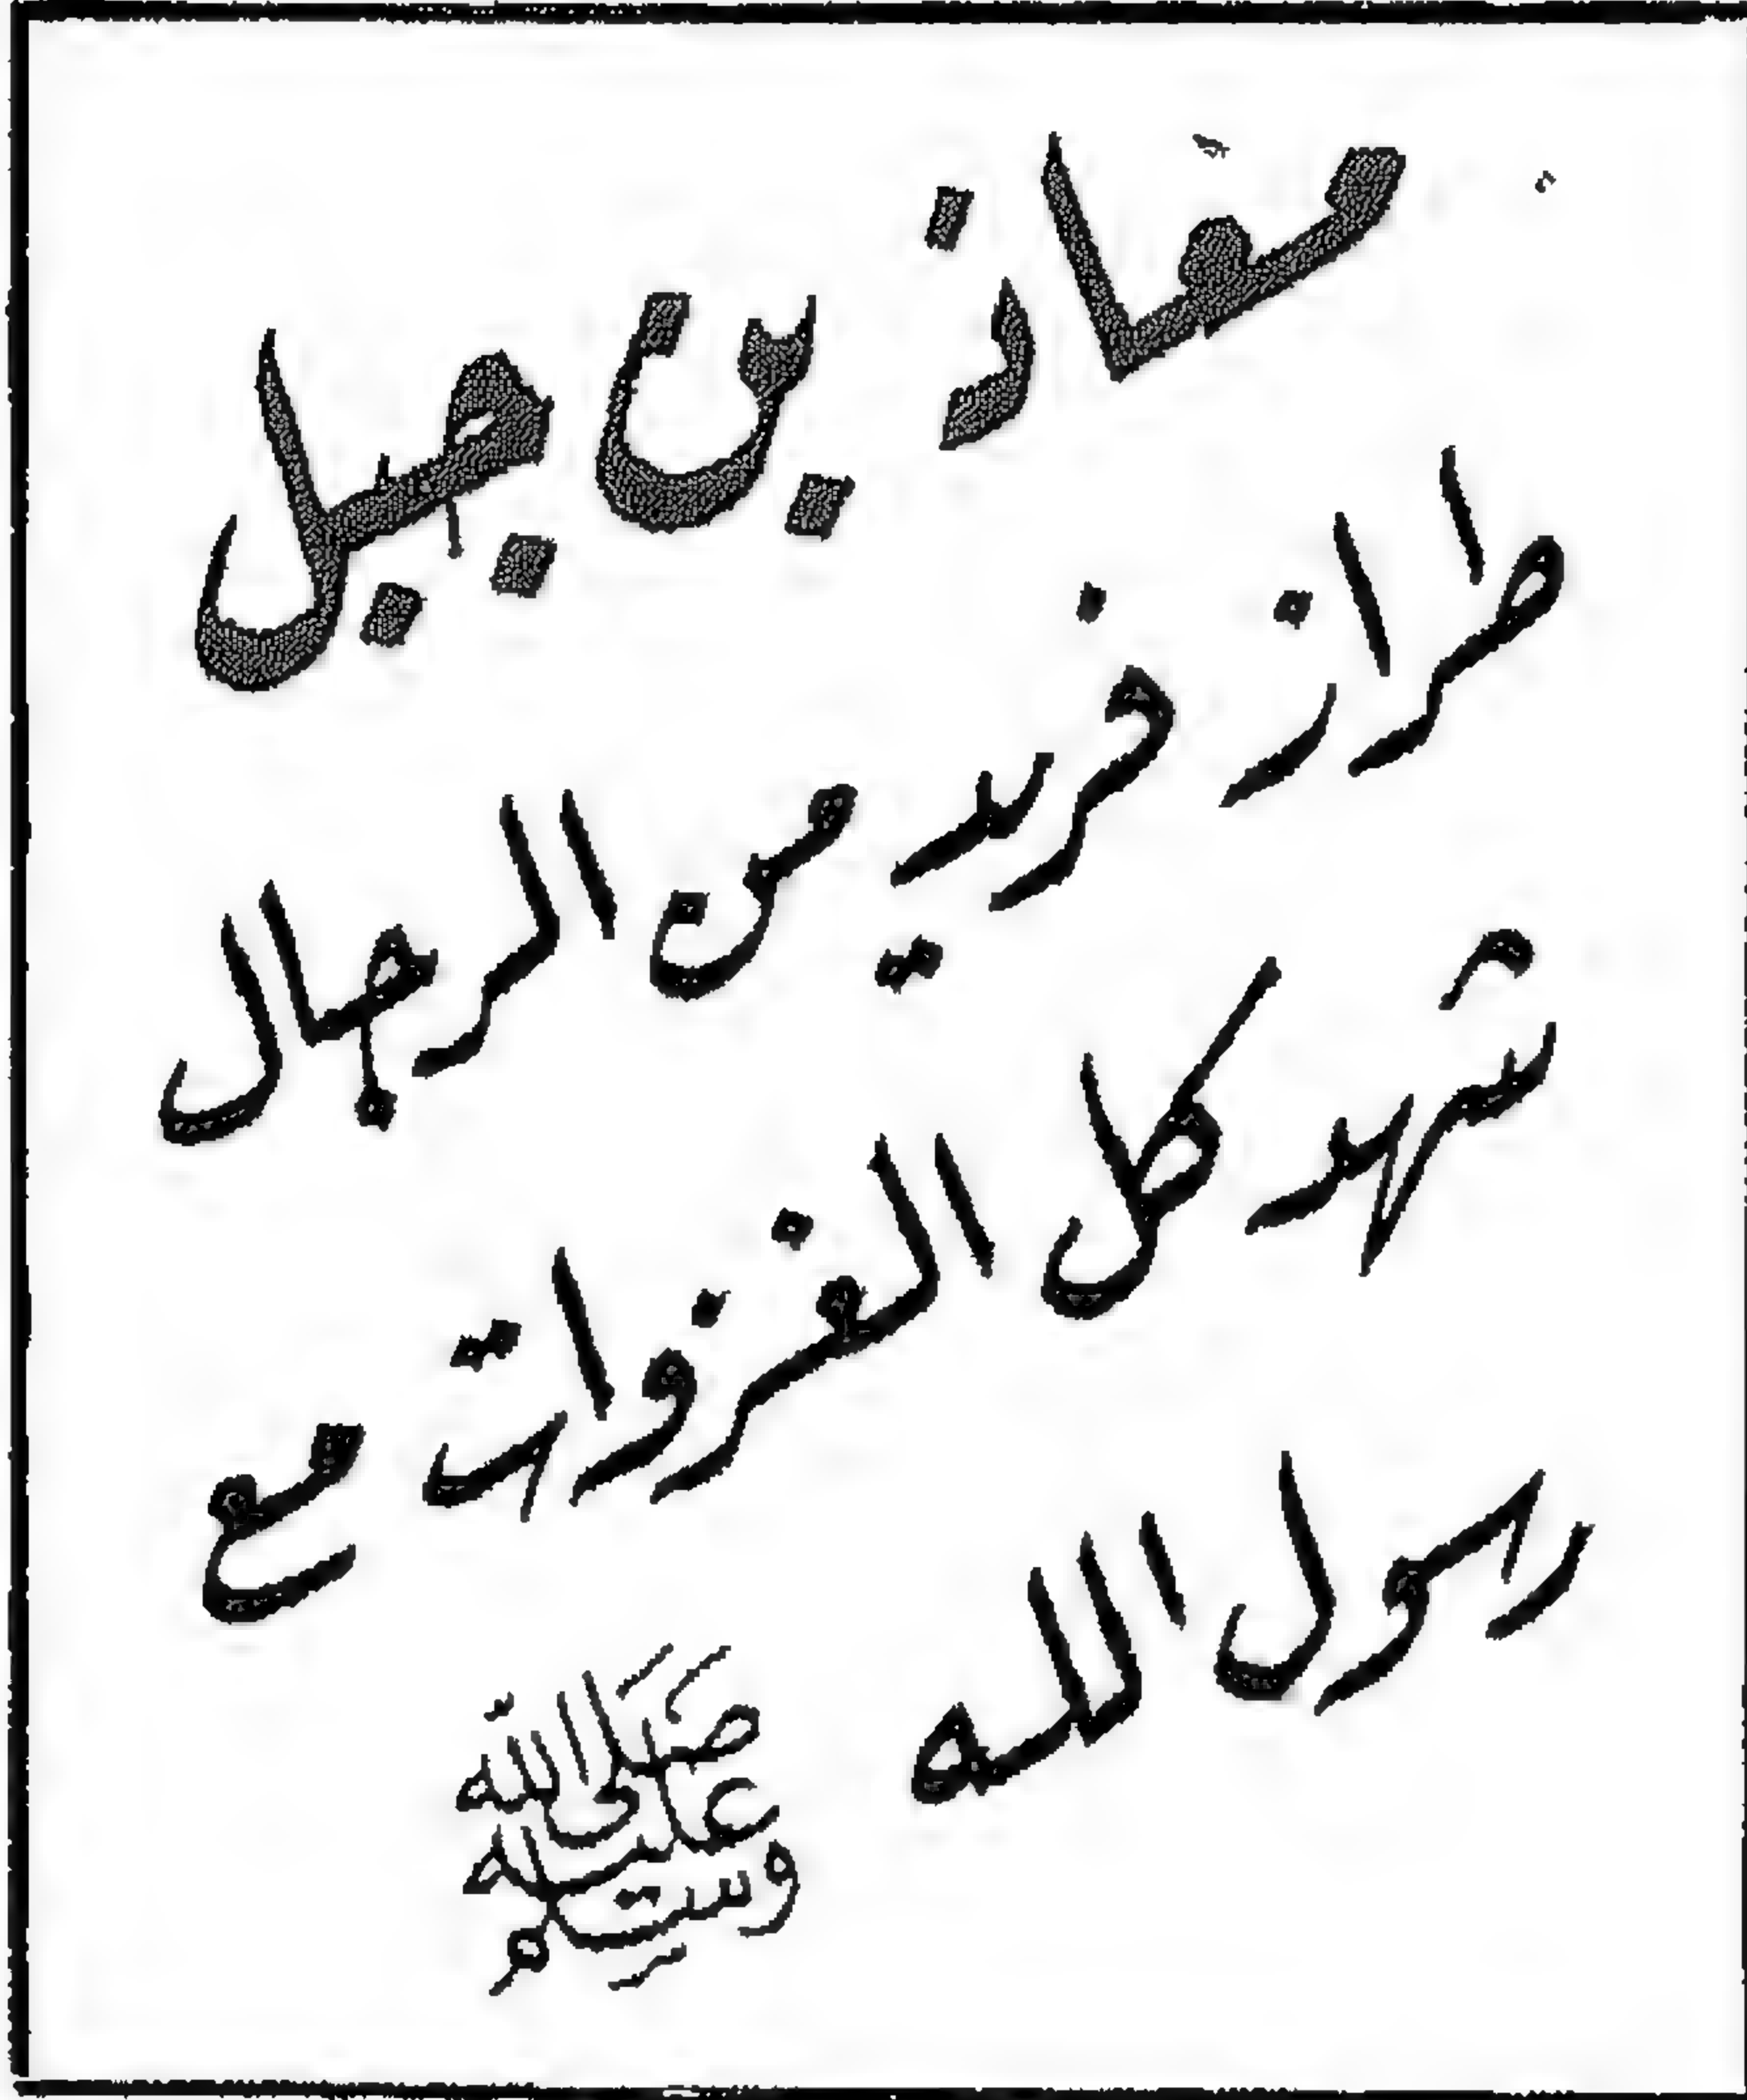 معاذ بن جبل
طراز فريد من الرجال
شهد كل الغزوات مع
رسول الله صلى الله عليه وسلم